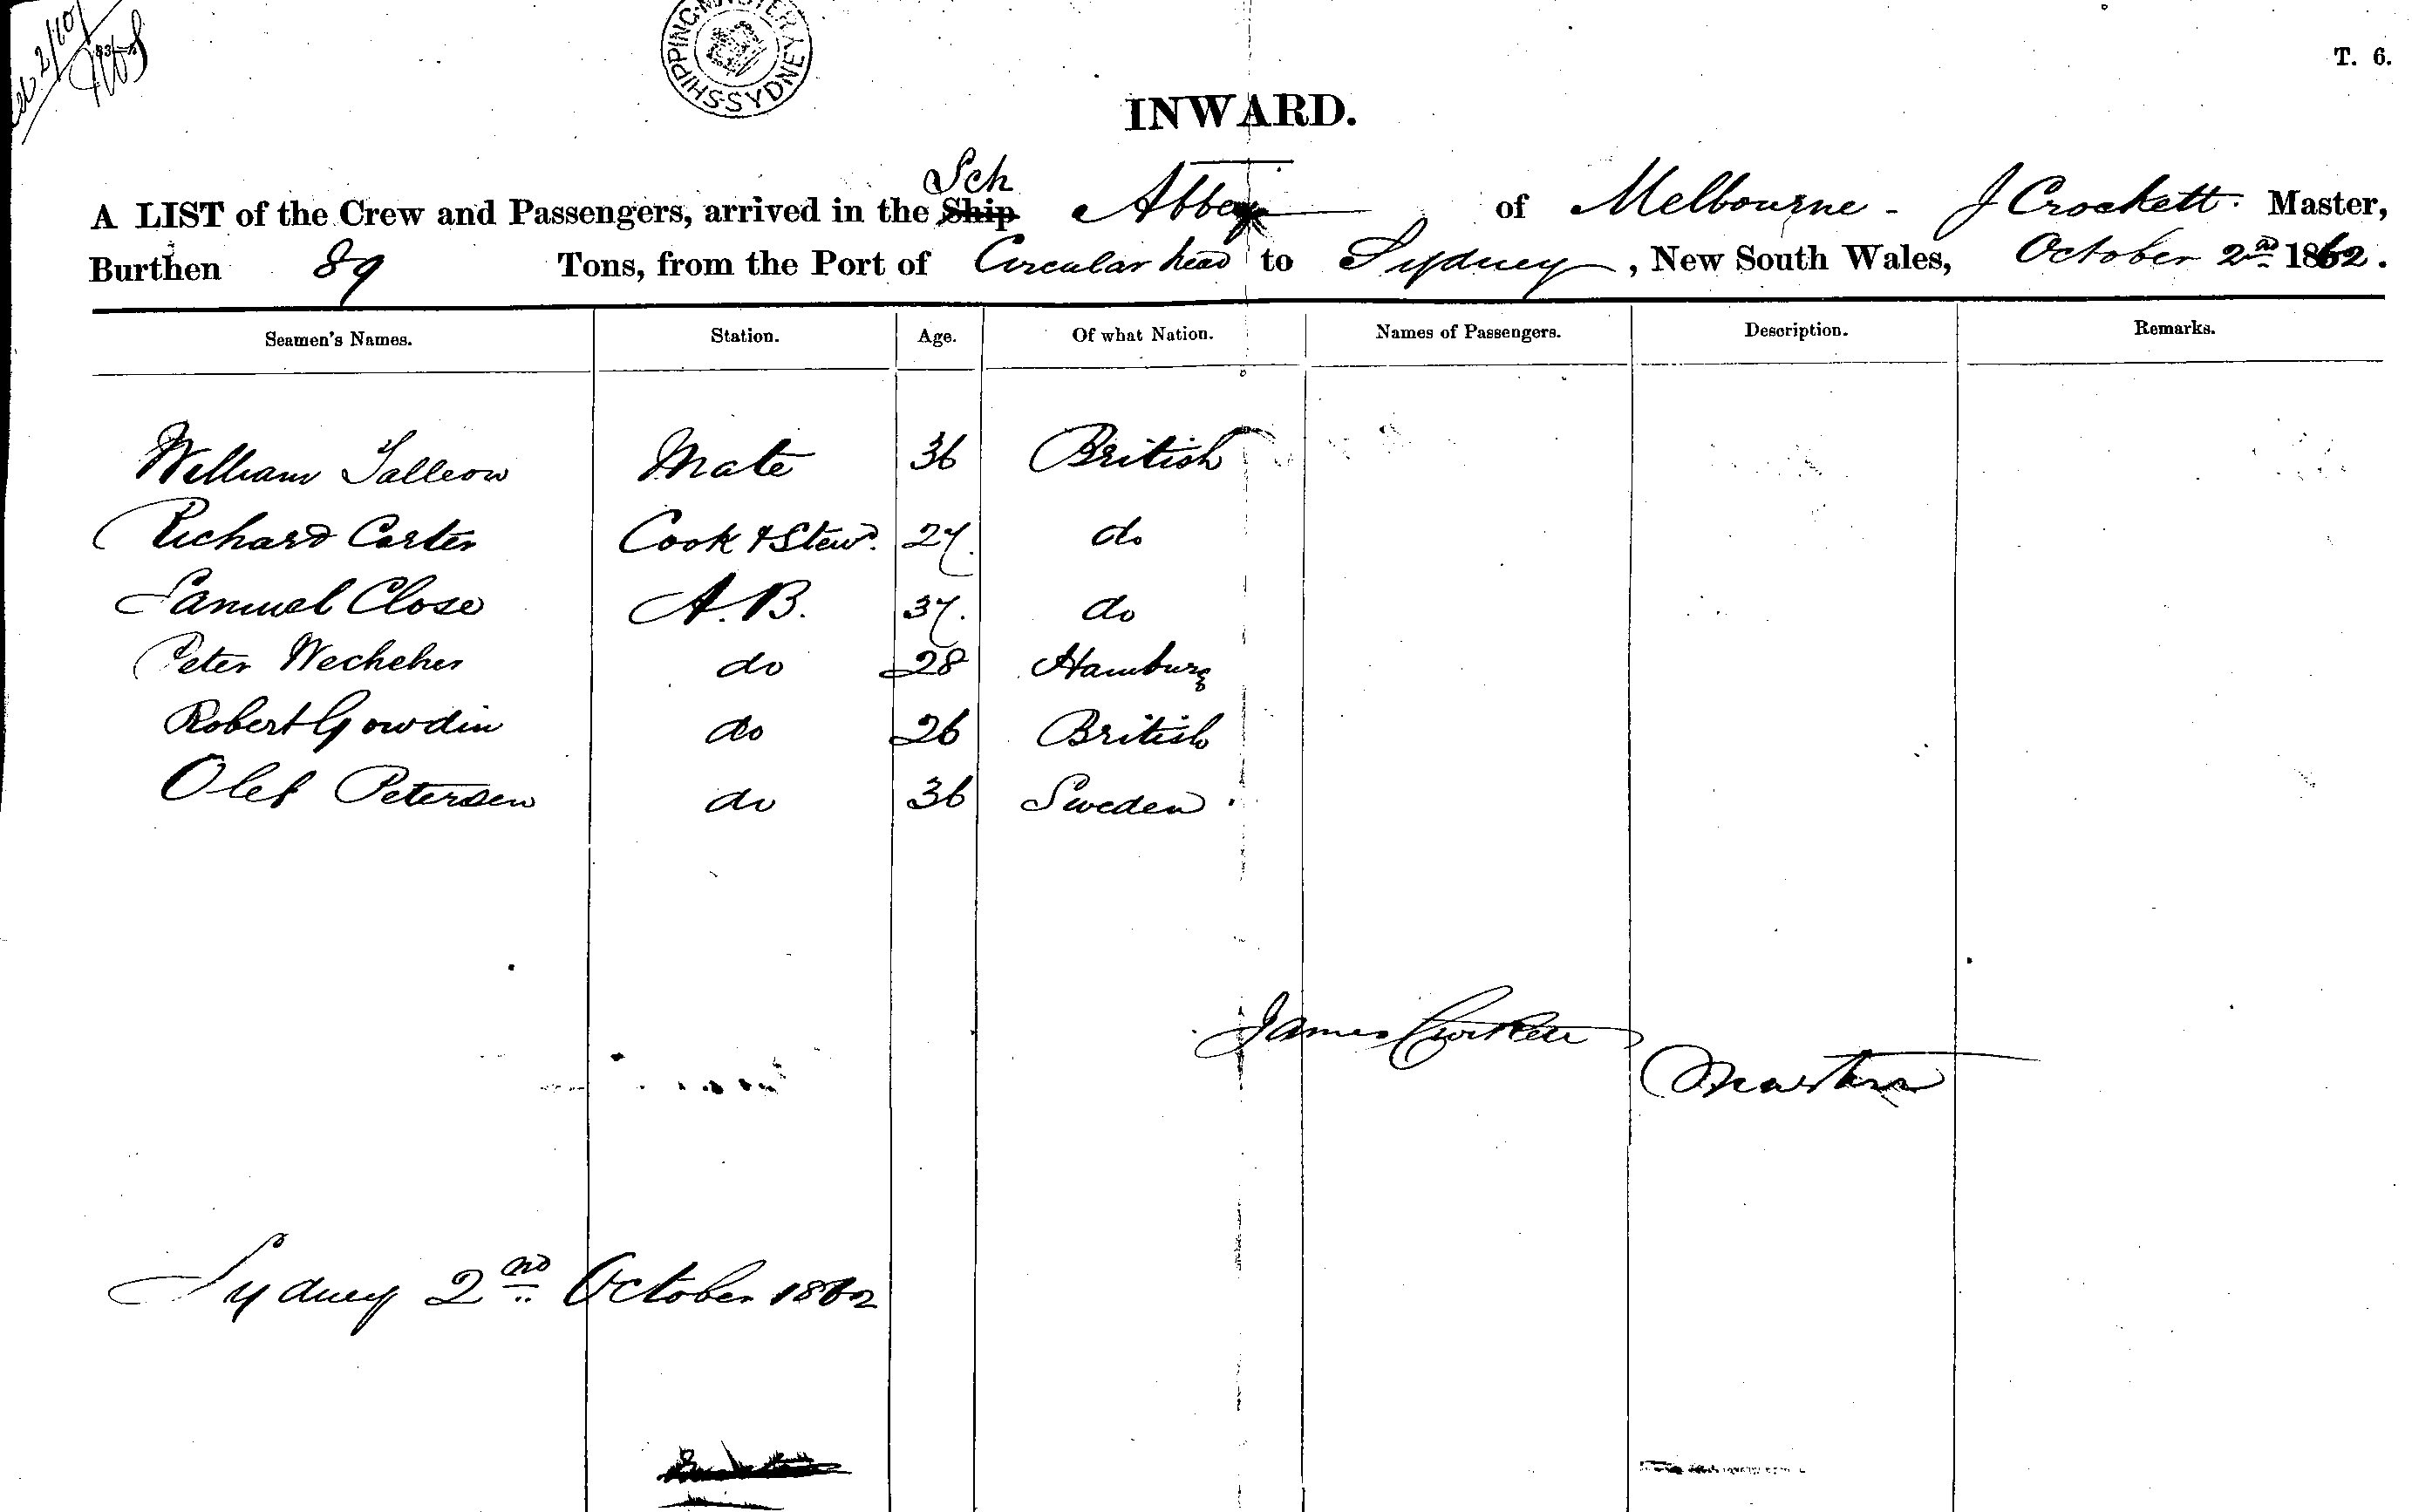 SHIPPING·MASTER SYDNEY
T. 6.
INWARD.
Sch
A LIST of the Crew and Passengers, arrived in the Ship Abbey of Melbourne - J Crockett. Master,
Burthen 89 Tons, from the Port of Circular head to Sydney, New South Wales, October 2nd 1862.
Seamen's Names. Station. Age. Of what Nation. Names of Passengers. Description. Remarks.
William Mate 36 British
Richard Carter Cook & Stewd. 27. do
Samuel Close A.B. 37. do
Peter do 28 Hamburg
Robert Gowdin do 26 British
Olef Petersen do 36 Sweden
James Crockett
Master
Sydney 2nd October 1862